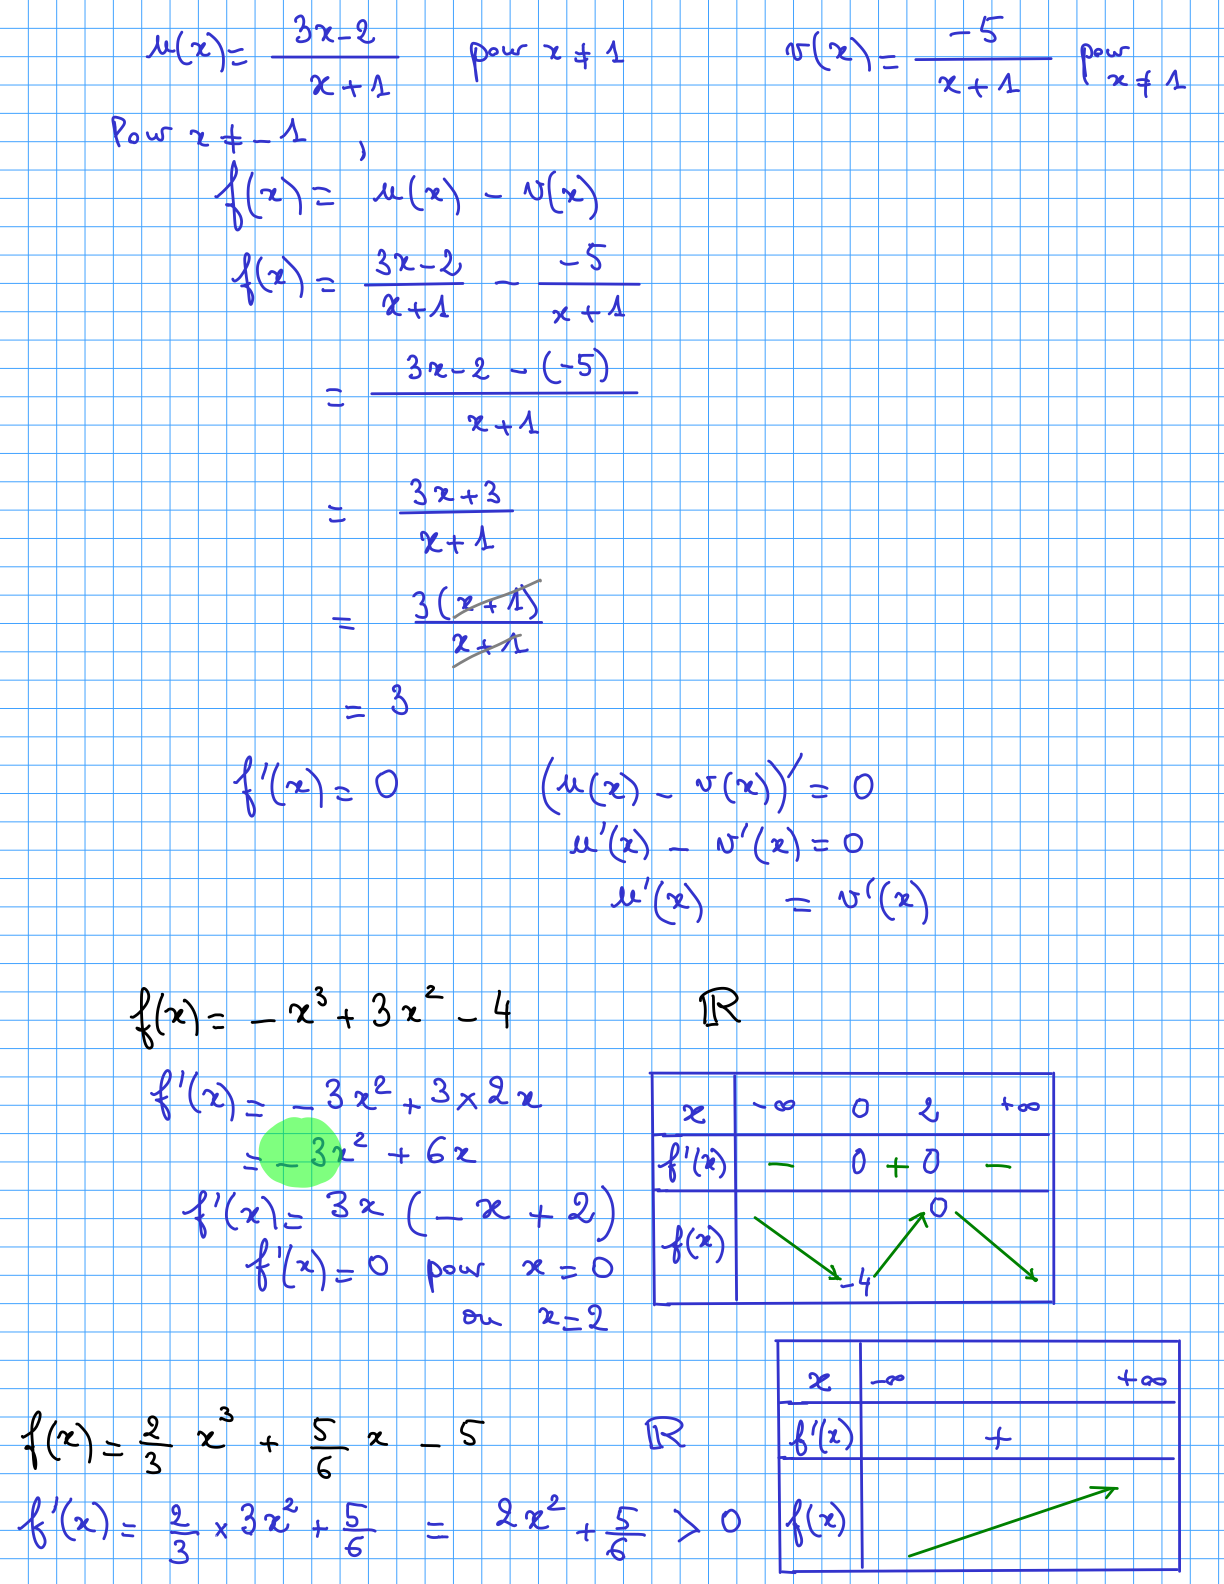 u(x) = (3x-2)/(x+1) pour x ≠ 1 v(x) = -5/(x+1) pour x ≠ 1
Pour x ≠ -1 ,
f(x) = u(x) - v(x)
f(x) = (3x-2)/(x+1) - (-5)/(x+1)
= (3x-2 - (-5))/(x+1)
= (3x+3)/(x+1)
= 3(x+1)/(x+1)
= 3
f'(x) = 0 (u(x) - v(x))' = 0
u'(x) - v'(x) = 0
u'(x) = v'(x)
f(x) = - x³ + 3x² - 4 ℝ
f'(x) = - 3x² + 3 × 2x
= - 3x² + 6x
f'(x) = 3x (- x + 2)
f'(x) = 0 pour x = 0
ou x = 2
x -∞ 0 2 +∞
f'(x) - 0 + 0 -
f(x) -4 0
f(x) = 2/3 x³ + 5/6 x - 5 ℝ
f'(x) = 2/3 × 3x² + 5/6 = 2x² + 5/6 > 0
x -∞ +∞
f'(x) +
f(x)